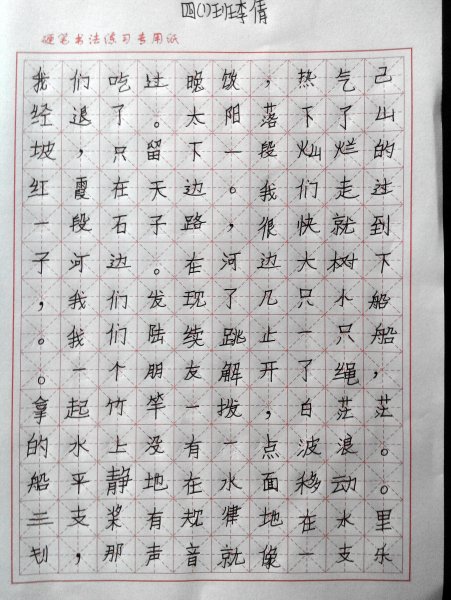 四(1)班李倩
硬笔书法练习专用纸
我们吃过晚饭，热气已
经退了。太阳落下了山
坡，只留下一段灿烂的
红霞在天边。我们走过
一段石子路，很快就到
子河边。在河边大树下
，我们发现了几只小船
。我们陆续跳上一只船
。一个朋友解开了绳，
拿起竹竿一拨，白茫茫
的水上没有一点波浪。
船平静地在水面移动。
三支桨有规律地在水里
划，那声音就像一支乐